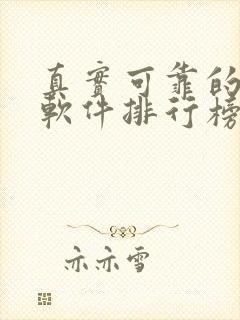 真實可靠的
軟件排行榜
亦亦雪